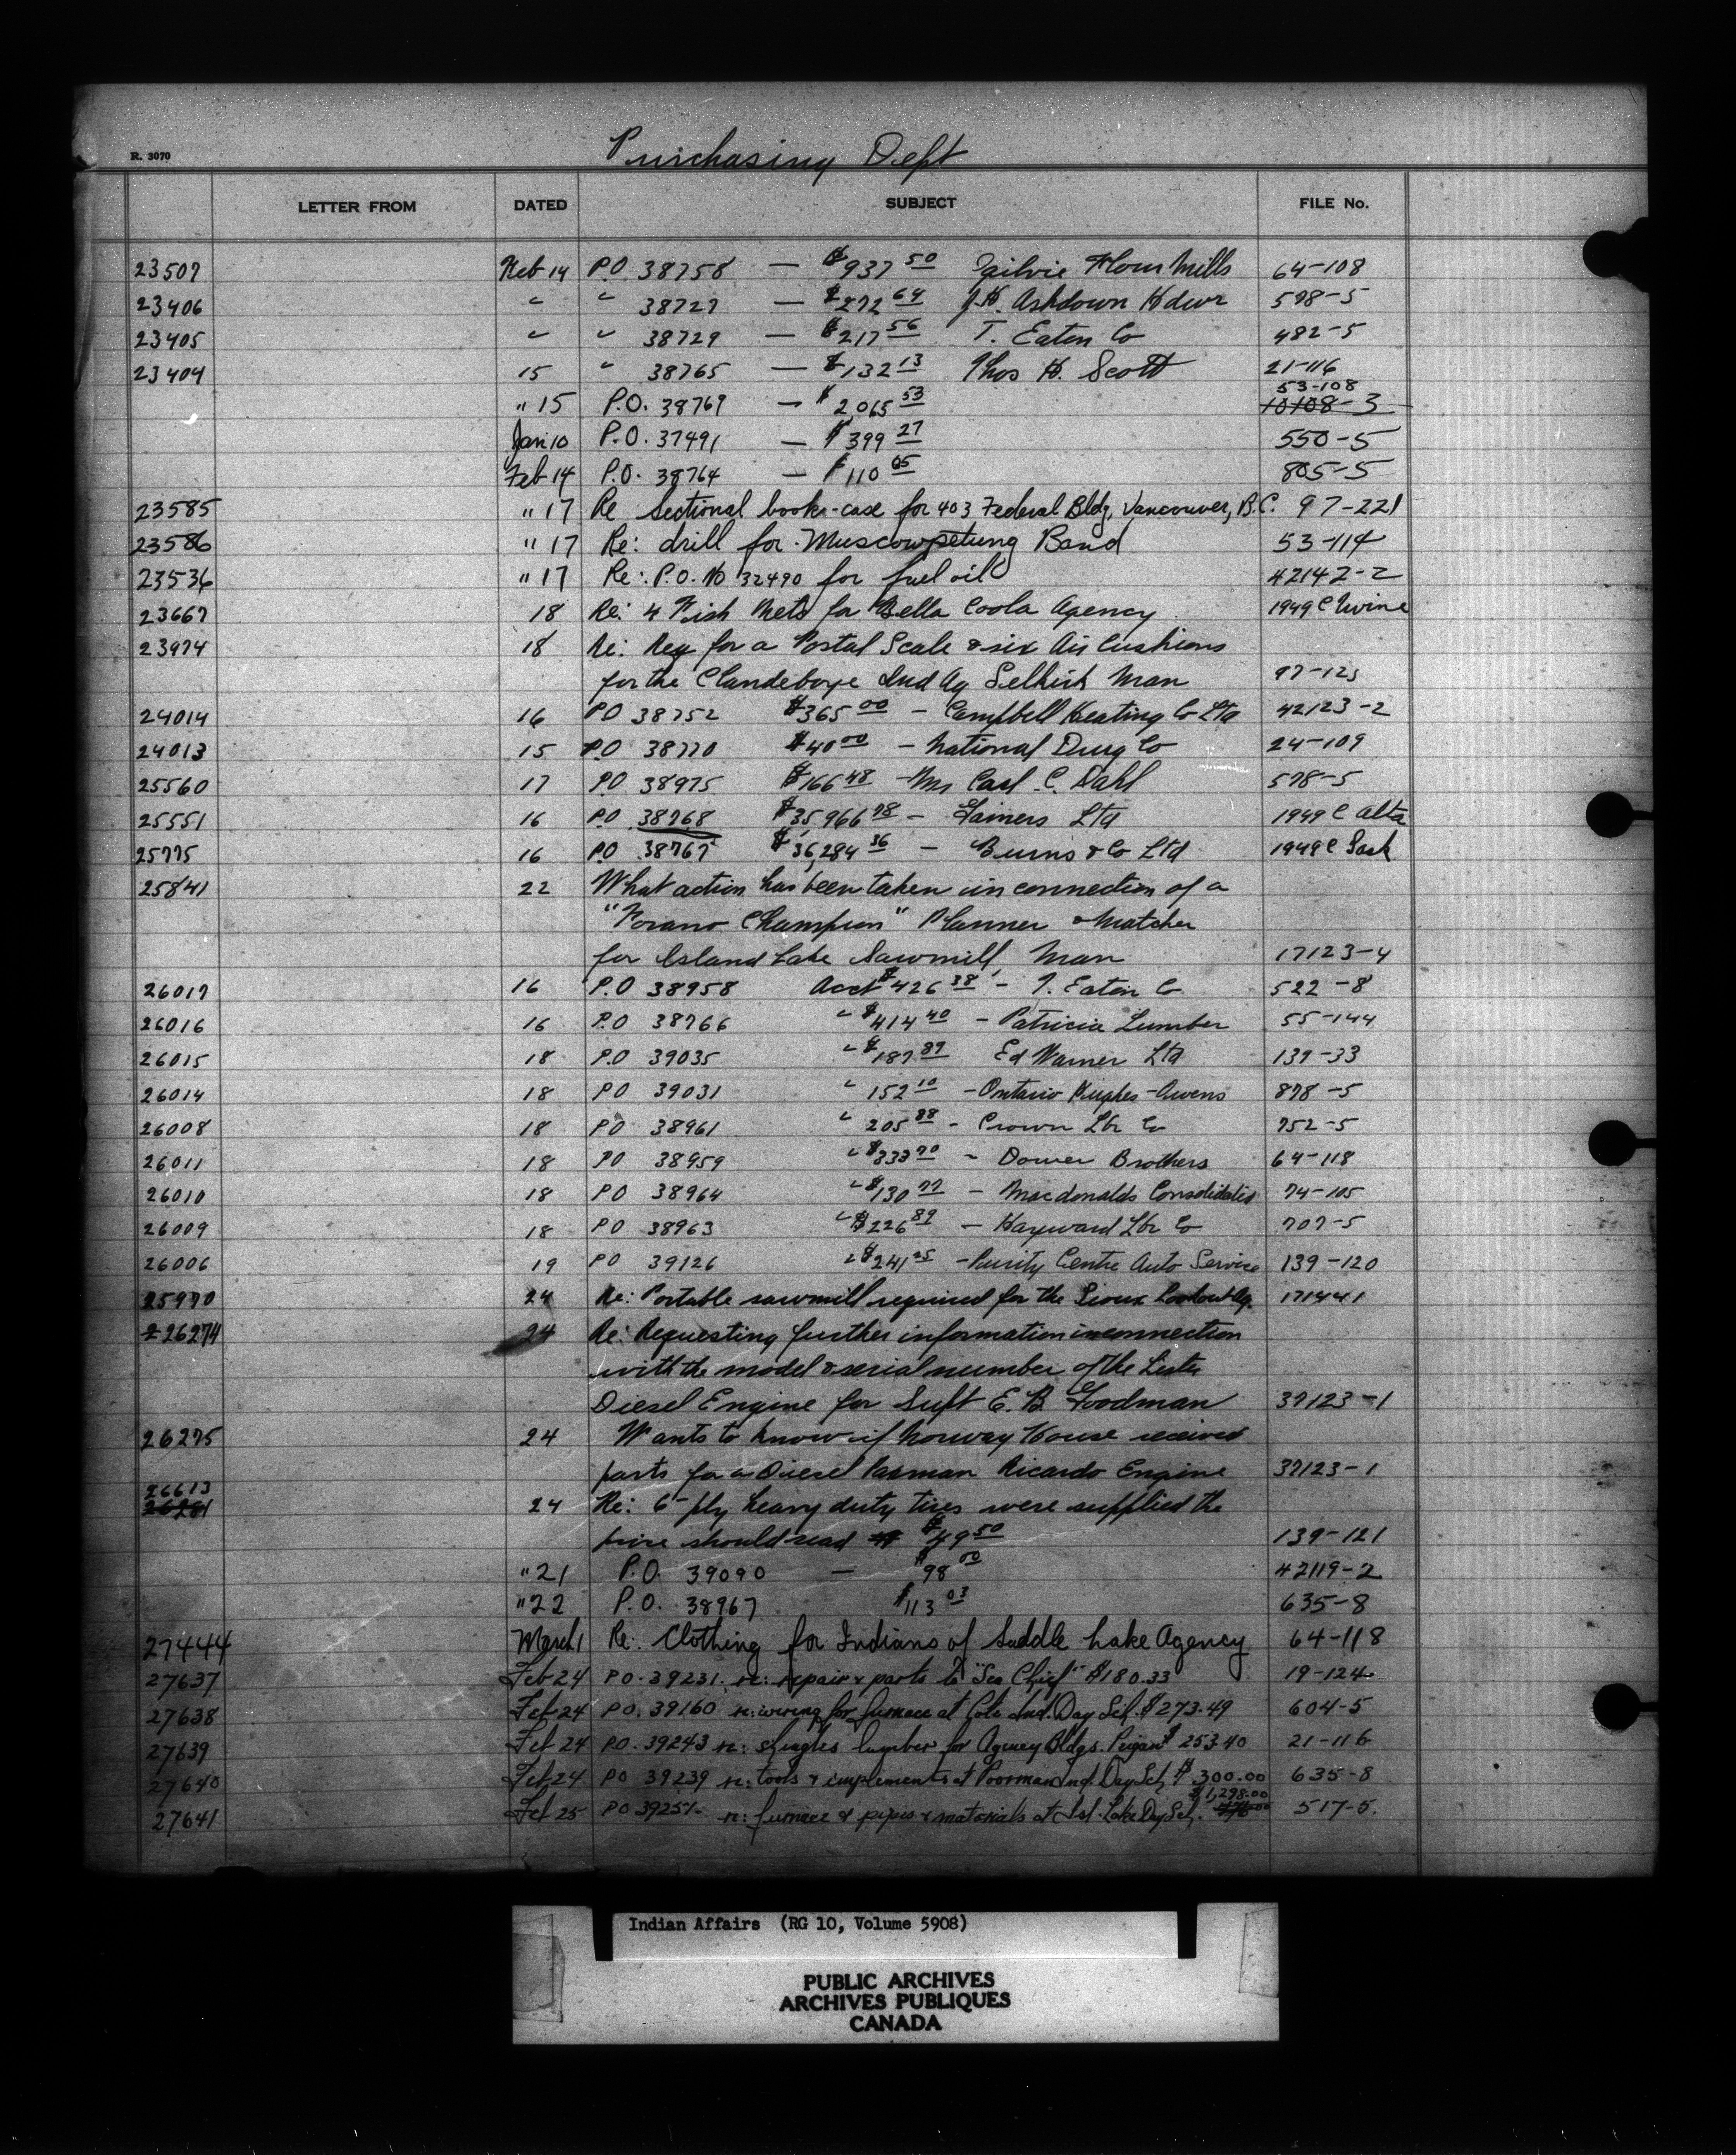 Purchasing Dept
R. 3070
LETTER FROM DATED SUBJECT FILE No.
23507 Feb 14 P.O 38758 — $937 50 Ogilvie Flour Mills 64-108
23406 " " 38727 — $272 64 J.H. Ashdown Hdwr 578-5
23405 " " 38729 — $217 56 T. Eaton Co 482-5
23404 15 " 38765 — $132 13 Thos H. Scott 21-116
53-108
" 15 P.O. 38769 — $2,065 53 10108-3
Jan 10 P.O. 37491 — $399 27 550-5
Feb 14 P.O. 38764 — $110 05 805-5
23585 " 17 Re Sectional book-case for 403 Federal Bldg, Vancouver, B.C. 97-221
23586 " 17 Re: drill for Muscowpetung Band 53-114
23536 " 17 Re: P.O. No 32490 for fuel oil 42142-2
23667 18 Re: 4 Fish Nets for Bella Coola Agency 1949 C
23974 18 Re: Req for a Postal Scale & six Air Cushions
for the Clandeboye Ind Ag Selkirk Man 97-125
24014 16 PO 38752 $365 00 — Campbell Keating Co Ltd 42123-2
24013 15 P.O 38770 $40 00 — National Drug Co 24-109
25560 17 P.O 38975 $166 48 — Carl C. Dahl 578-5
25551 16 P.O 38768 $35,966 78 — Gainers Ltd 1949 C Alta
25775 16 P.O 38767 $36,284 36 — Burns & Co Ltd 1949 C Sask
25841 22 What action has been taken in connection of a
"Forano Champion" Planner & Matcher
for Island Lake Sawmill, Man 17123-4
26017 16 P.O 38958 Acct $426 38 — T. Eaton Co 522-8
26016 16 P.O 38766 " $414 40 — Patricia Lumber 55-144
26015 18 P.O 39035 " $187 89 Ed Warner Ltd 139-33
26014 18 PO 39031 " 152 10 — Ontario Hughes-Owens 878-5
26008 18 PO 38961 " 205 88 — Crown Lbr Co 752-5
26011 18 PO 38959 " $333 70 — Brothers 64-118
26010 18 PO 38964 " $130 77 — Macdonalds Consolidated 74-105
26009 18 PO 38963 " $226 89 — Hayward Lbr Co 707-5
26006 19 PO 39126 " $241 25 — Purity Centre Auto Service 139-120
25970 24 Re: Portable sawmill required for the Sioux Lookout Ag. 171441
26274 24 Re: Requesting further information in connection
with the model & serial number of the Lister
Diesel Engine for Supt E. B. Goodman 37123-1
26275 24 Wants to know if Norway House received
parts for a Diesel Paxman Ricardo Engine 37123-1
26613
26281 24 Re: 6-ply heavy duty tires were supplied the
price should read $49 50 139-121
" 21 P.O. 39090 — $98 00 42119-2
" 22 P.O. 38967 $113 03 635-8
27444 March 1 Re: Clothing for Indians of Saddle Lake Agency 64-118
27637 Feb 24 PO. 39231. re: repair & parts to "Sea Chief" $180.33 19-124
27638 Feb 24 PO. 39160 re: wiring for furnace at Cote Ind. Day Sch. $273.49 604-5
27639 Feb 24 PO. 39243 re: shingles lumber for Agency Bldgs. Peigan $253.40 21-116
27640 Feb 24 PO 39239 re: tools & implements at Poorman Ind. Day Sch $300.00 635-8
$1,298.00
27641 Feb 25 PO 39251 re: furnace & pipes & materials at Isl. Lake Day Sch. 517-5.
Indian Affairs (RG 10, Volume 5908)
PUBLIC ARCHIVES
ARCHIVES PUBLIQUES
CANADA